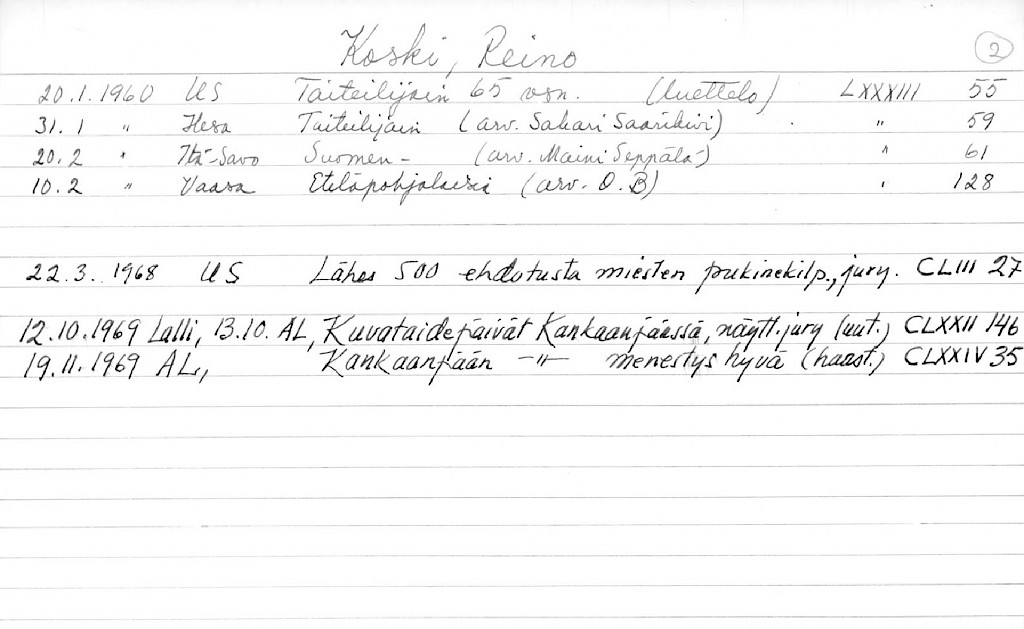 Koski, Reino 2
20.1.1960 US Taiteilijain 65 vsn. (luettelo) LXXXIII 55
31.1 " Hesa Taiteilijain (arv. Sakari Saarikivi) " 59
20.2 " Itä-Savo Suomen- (arv. Maini Seppälä-) " 61
10.2 " Vaasa Eteläpohjalaisia (arv. O.B) " 128
22.3. 1968 US Lähes 500 ehdotusta miesten pukinekilp., jury. CLIII 27
12.10.1969 Lalli, 13.10. AL, Kuvataidepäivät Kankaanpäässä, näytt. jury (uut.) CLXXII 146
19.11.1969 AL, Kankaanpään -"- menestys hyvä (haast.) CLXXIV 35